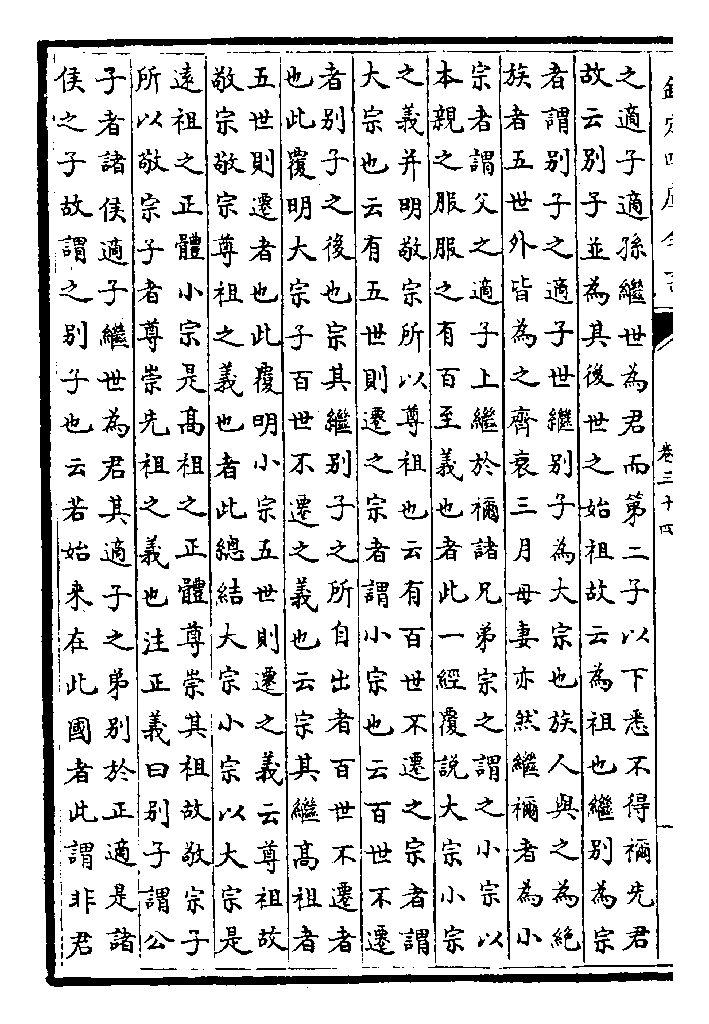 欽定四庫全書
卷三十四
之適子適孫繼世為君而第二子以下悉不得禰先君
故云別子並為其後世之始祖故云為祖也繼別為宗
者謂別子之適子世繼別子為大宗也族人與之為絶
族者五世外皆為之齊衰三月母妻亦然繼禰者為小
宗者謂父之適子上繼於禰諸兄弟宗之謂之小宗以
本親之服服之有百至義也者此一經覆說大宗小宗
之義并明敬宗所以尊祖也云有百世不遷之宗者謂
大宗也云有五世則遷之宗者謂小宗也云百世不遷
者別子之後也宗其繼別子之所自出者百世不遷者
也此覆明大宗子百世不遷之義也云宗其繼高祖者
五世則遷者也此覆明小宗五世則遷之義云尊祖故
敬宗敬宗尊祖之義也者此總結大宗小宗以大宗是
遠祖之正體小宗是高祖之正體尊崇其祖故敬宗子
所以敬宗子者尊崇先祖之義也注正義曰別子謂公
子者諸侯適子繼世為君其適子之弟別於正適是諸
侯之子故謂之別子也云若始來在此國者此謂非君